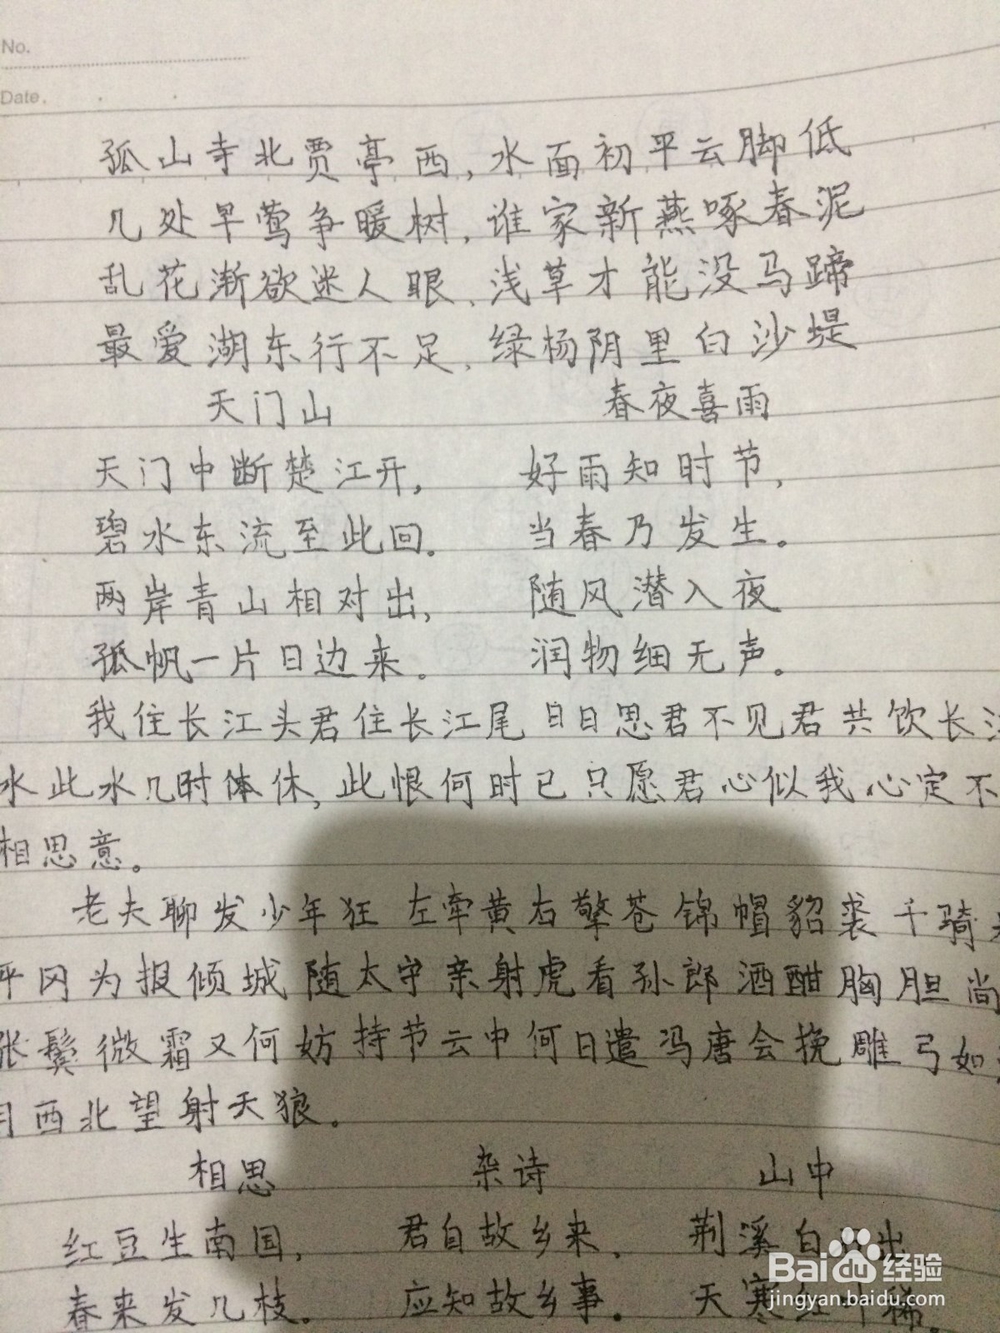 No.
Date.
孤山寺北贾亭西,水面初平云脚低
几处早莺争暖树,谁家新燕啄春泥
乱花渐欲迷人眼、浅草才能没马蹄
最爱湖东行不足,绿杨阴里白沙堤
天门山 春夜喜雨
天门中断楚江开, 好雨知时节,
碧水东流至此回。 当春乃发生。
两岸青山相对出, 随风潜入夜
孤帆一片日边来。 润物细无声。
我住长江头君住长江尾日日思君不见君共饮长
水此水几时休,此恨何时已只愿君心似我心定不
相思意。
老夫聊发少年狂 左牵黄右擎苍锦帽貂裘千骑
平冈为报倾城随太守亲射虎看孙郎酒酣胸胆尚
张鬓微霜又何妨持节云中何日遣冯唐会挽雕弓如
月西北望射天狼。
相思 杂诗 山中
红豆生南国, 君自故乡来、 荆溪白石出
春来发几枝。 应知故乡事。 天寒红叶稀。
Baidu经验
jingyan.baidu.com